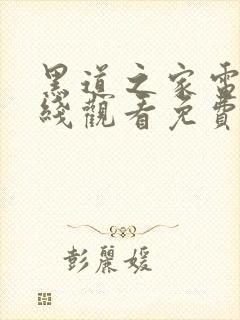 黑道之家電
綫觀看免費
彭麗媛